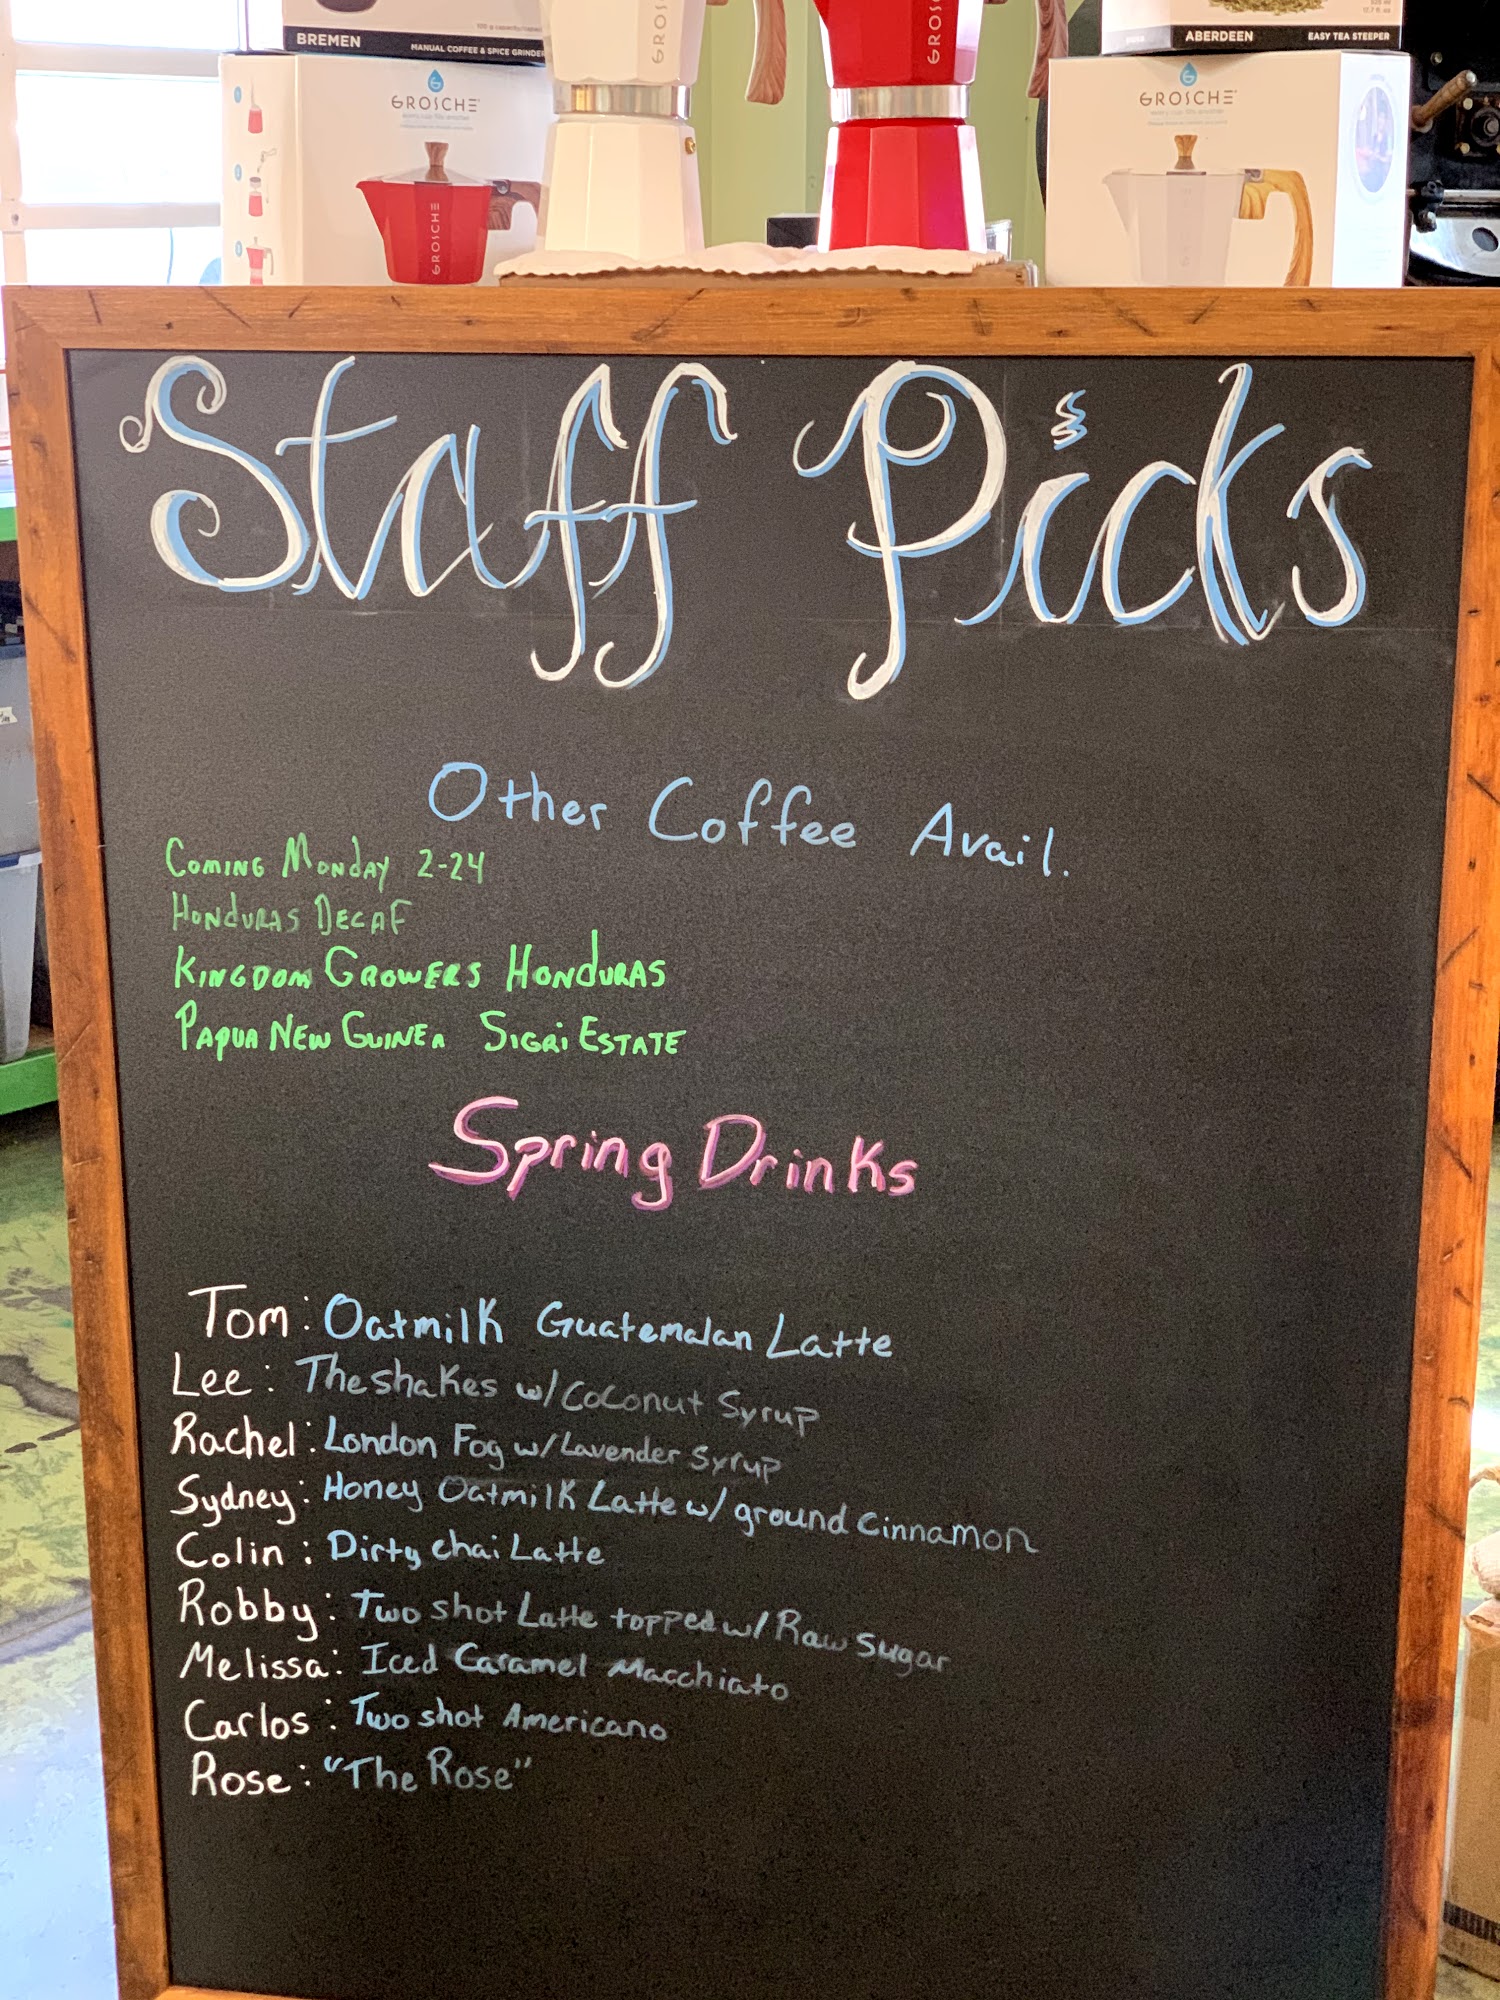 BREMEN
MANUAL COFFEE & SPICE GRINDER
ABERDEEN
EASY TEA STEEPER
GROSCHE
GROSCHE
GROSCHE
GROSCHE
Staff Picks
Other Coffee Avail.
Coming Monday 2-24
Honduras Decaf
Kingdom Growers Honduras
Papua New Guinea Sigri Estate
Spring Drinks
Tom: Oatmilk Guatemalan Latte
Lee: The shakes w/ Coconut Syrup
Rachel: London Fog w/ Lavender Syrup
Sydney: Honey Oatmilk Latte w/ ground cinnamon
Colin: Dirty chai Latte
Robby: Two shot Latte topped w/ Raw Sugar
Melissa: Iced Caramel Macchiato
Carlos: Two shot Americano
Rose: "The Rose"